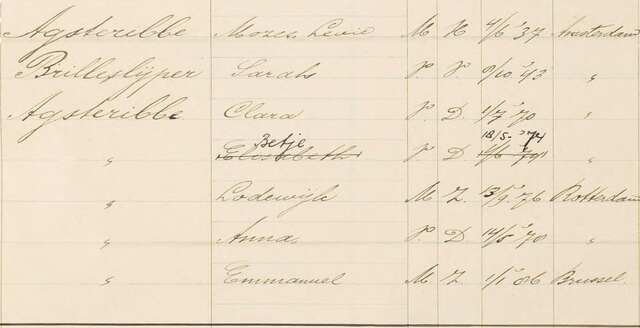 Agsteribbe Mozes Levie M H 4/6 '37 Amsterdam
Brilleslijper Sarah V V 9/10 '43 "
Agsteribbe Clara V. D. 1/7 '70 "
Betje 18/5- '74
" Elisabeth V D "
" Lodewijk M Z. 13/9 '76 Rotterdam
" Anna V. D 14/5 '78 "
" Emmanuel M Z. 1/1 '86 Brussel.